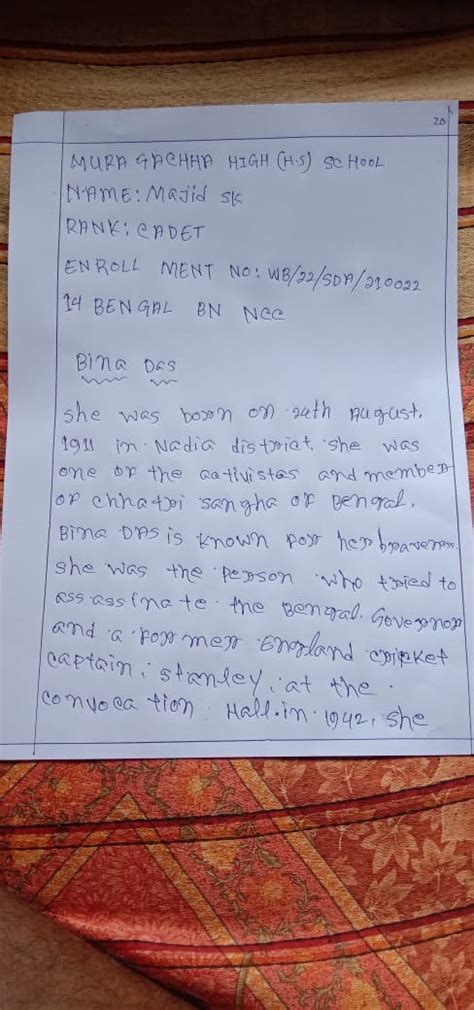 20
MURA GACHHA HIGH (H.S) SCHOOL
NAME: Majid SK
RANK: CADET
ENROLL MENT NO: WB/22/SDA/210022
14 BENGAL BN NCC
Bina Das
she was born on 24th August.
1911 in Nadia district. she was
one of the aativistas and member
of chhatri sangha of Bengal.
Bina DAS is known for her braveness
she was the person who tried to
ass assinate the Bengal. Governor
and a for mer England cricket
captain, stanley, at the
convoca tion Hall. in 1942, she